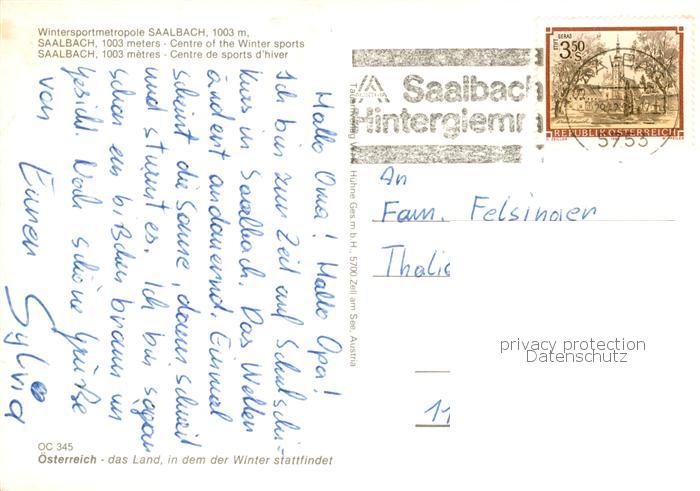 Wintersportmetropole SAALBACH, 1003 m,
SAALBACH, 1003 meters - Centre of the Winter sports
SAALBACH, 1003 mètres - Centre de sports d'hiver
Hallo Oma! Hallo Opa!
Ich bin zur Zeit auf Schulschi-
kurs in Saalbach. Das Wetter
ändert andauernd. Einmal
scheint die Sonne, dann schneit
und stürmt es. Ich bin sogar
schon ein bißchen braun im
Gesicht. Noch schöne Grüße
von Eurer
Sylvia
OC 345
Österreich - das Land, in dem der Winter stattfindet
Hühne Ges.m.b.H., 5700 Zell am See, Austria
Saalbach
Hinterglemm
STIFT GERAS
3.50
S
REPUBLIK ÖSTERREICH
5753
An
Fam. Felsinger
Thalia
11
privacy protection
Datenschutz